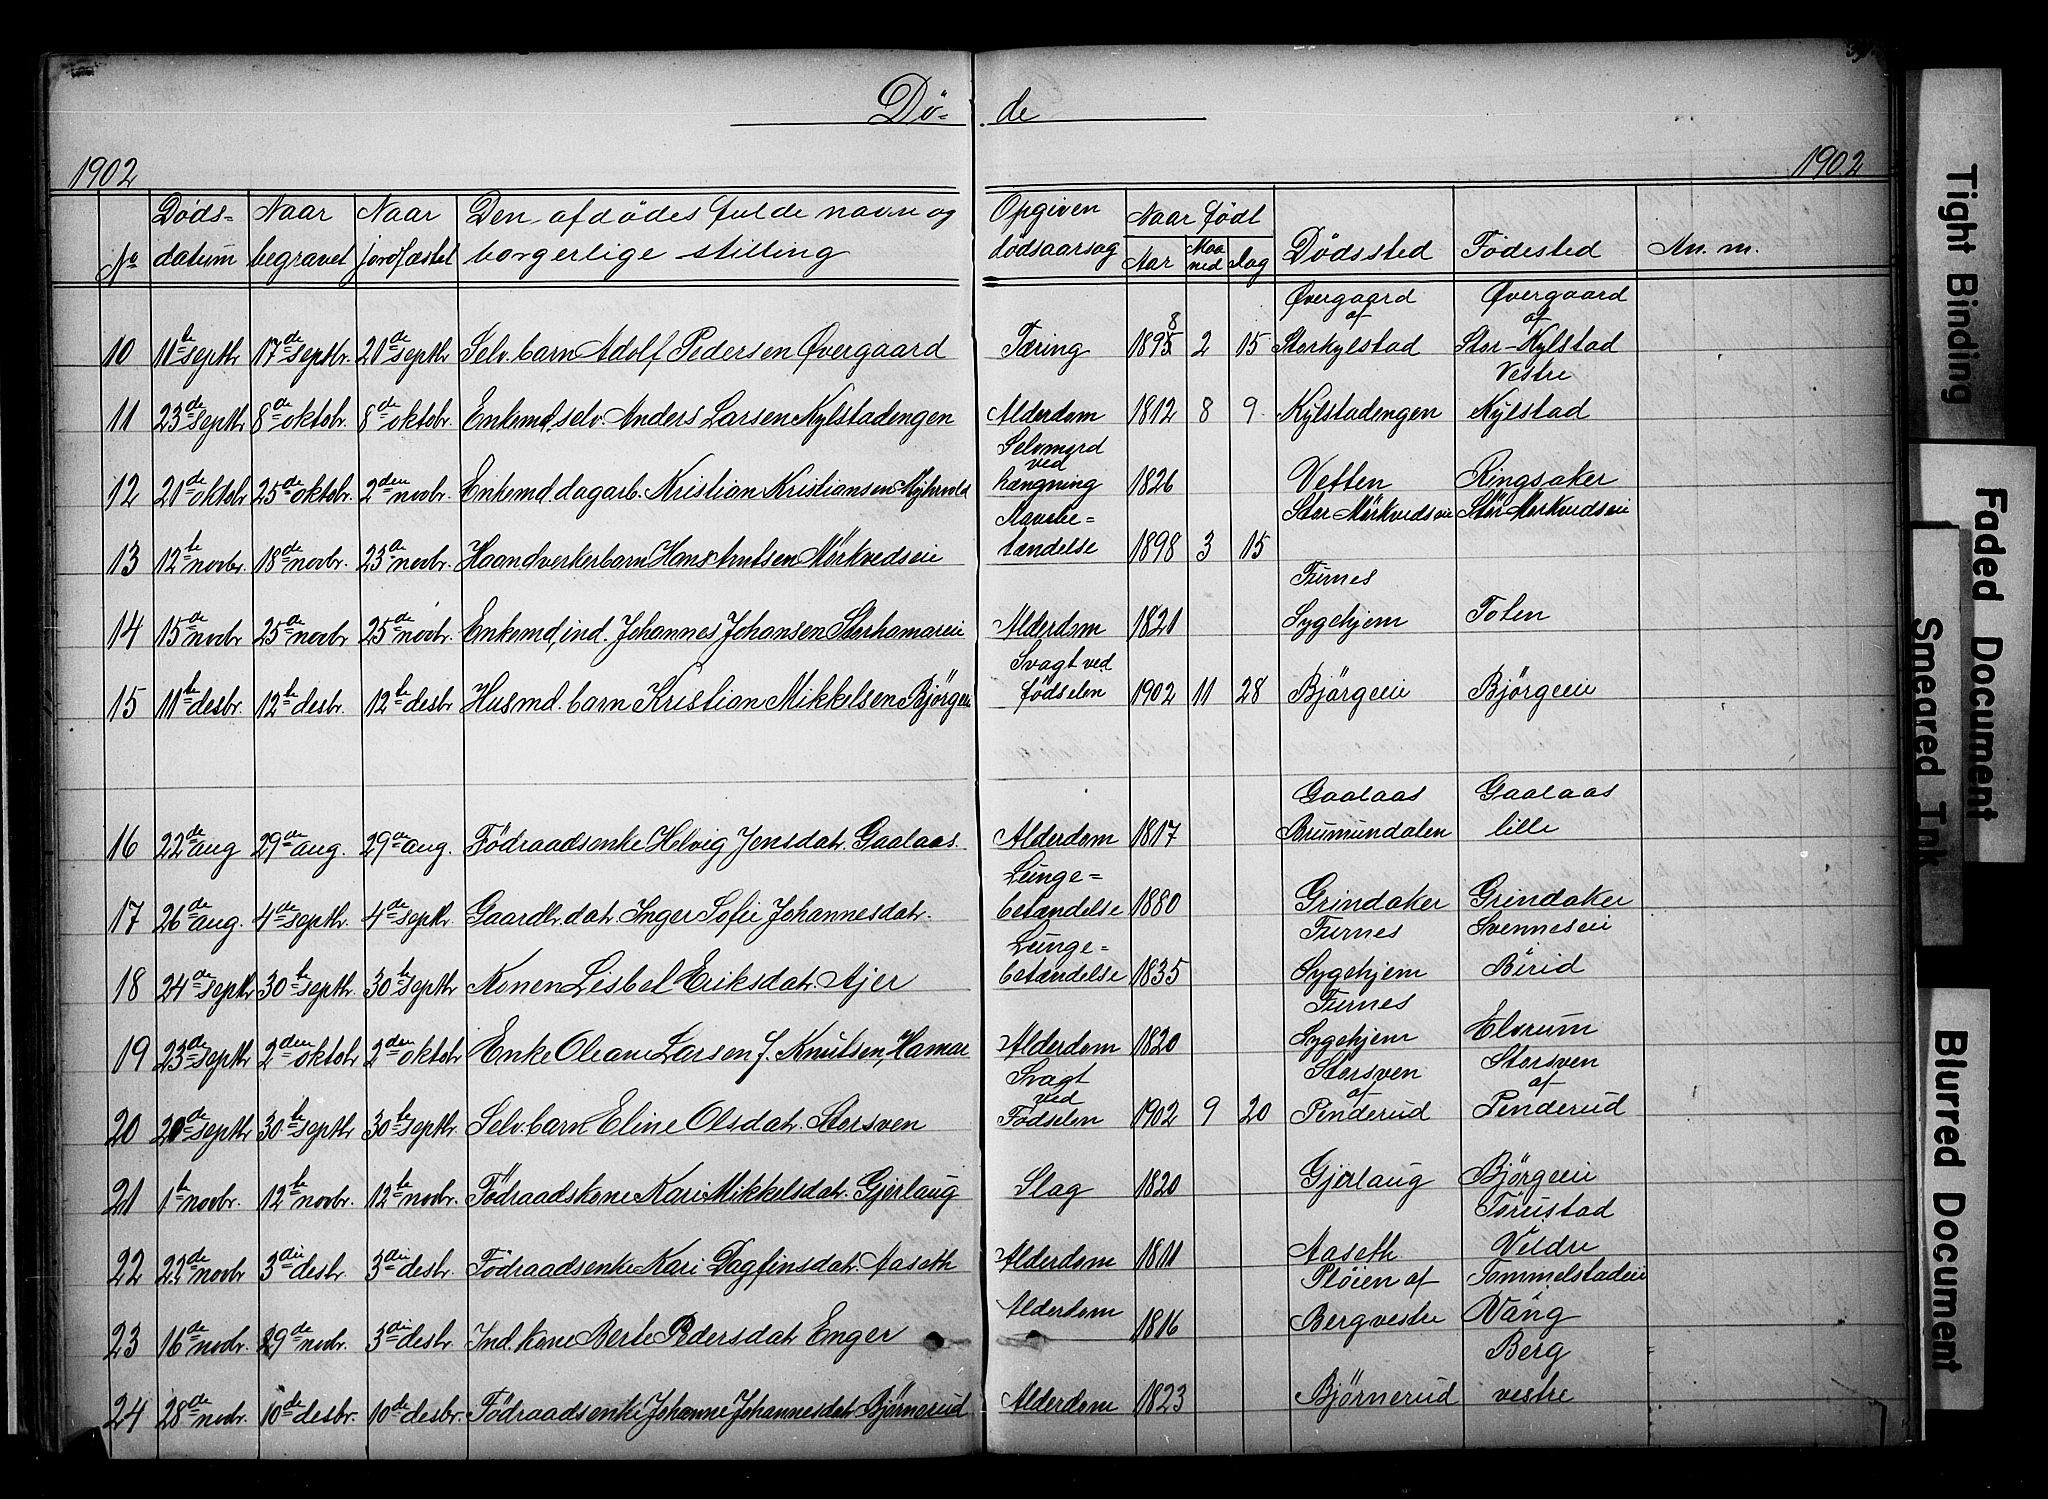 Dö- de
1902 1902
No Döds-datum Naar begravet Naar jordfæstet Den afdödes fulde navn og borgerlige stilling Opgiven dödsaarsag Naar födt Aar Maaned Dag Dödssted Födested An. m.
10 11te septbr 17de septbr. 21de septbr Selv. barn Adolf Pedersen Øvergaard Tæring 1895 8 2 15 Øvergaard af Storkylstad Øvergaard af Stor-Kylstad
11 23de septbr 8de oktobr. 8de oktobr. Enkemd. selv. Anders Larsen Kylstadengen Alderdom 1812 8 9 Kylstadengen Vestre Kylstad
12 21de oktobr 25de oktobr. 2den novbr. Enkemd. dagarb. Kristian Kristiansen Selvmord ved hængning 1826 Vetten Ringsaker
13 12te novbr. 18de novbr. 23de novbr. Haandverkerbarn Hans Mörkvedseie Mavebe=tændelse 1898 3 15 Stor Mörkvedseie Stor Mörkvedseie
14 15de novbr 25de novbr 25de novbr. Enkemd, ind. Johannes Johansen Storhamareie Alderdom 1820 Furnes Sygehjem Toten
15 11te desbr. 12te desbr. 12te desbr Husmd. barn Kristian Mikkelsen Björgeeie Svagt ved födselen 1902 11 28 Björgeeie Björgeeie
16 22de aug 29de aug. 29de aug. Födraadsenke Helvig Jensdatr. Gaalaas. Alderdom 1817 Gaalaas Brumundalen Gaalaas lille
17 26de aug. 4de septbr. 4de septbr. Gaardbr. datr Inger Sofie Johannesdatr. Lunge=betændelse 1880 Grindaker Grindaker
18 24de septbr 30te septbr 30te septbr Konen Lisbet Eriksdatr. Ajer Lunge=betændelse 1835 Furnes Sygehjem Svenneseie Birid
19 23de septbr 2den oktobr 2den oktobr Enke Oleane Larsen f. Knutsen, Hamar Alderdom 1820 Furnes Sygehjem Elvrum
20 20de septbr 30te septbr 30te septbr Selv. barn Eline Olsdatr. Storsven Svagt ved Födselen 1902 9 20 Storsven af Penderud Storsven af Penderud
21 1te novbr. 12te novbr. 12te novbr. Födraadskone Kari Mikkelsdatr. Gjerlaug Slag 1820 Gjerlaug Björgeeie
22 22de novbr 3die desbr. 3die desbr. Födraadsenke Kari Dagfinsdatr. Aaseth Alderdom 1811 Aaseth Törustad Veldre
23 16de novbr. 29de novbr. 3die desbr. Ind. kone Berte Pedersdatr Enger Alderdom 1816 Plöien af Berg vestre Tommelstadeie Vang
24 28de novbr. 10de desbr. 10de desbr. Födraadsenke Johanne Johannesdatr Björnerud Alderdom 1823 Björnerud Berg vestre
Tight Binding
Faded Document
Smeared Ink
Blurred Document